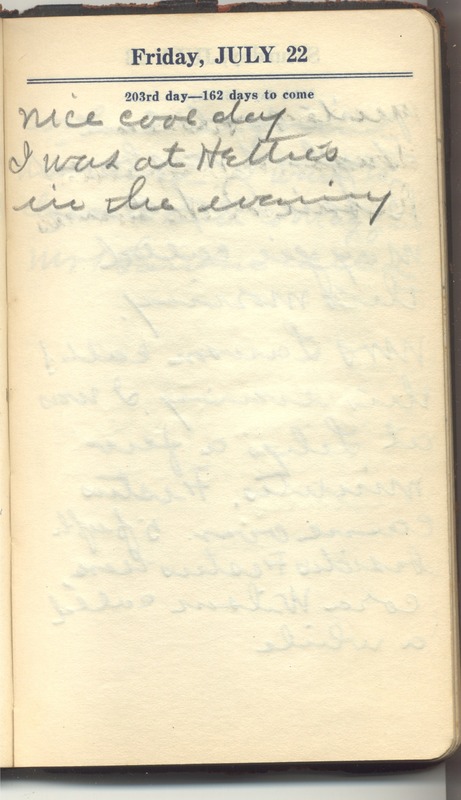 Friday, JULY 22
203rd day—162 days to come
nice cool day
I was at Hettie's
in the evening